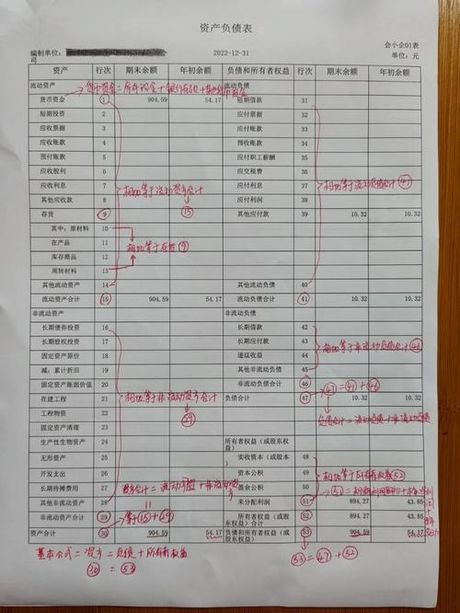 资产负债表
会小企01表
编制单位:
司
2022-12-31
单位:元
资产 行次 期末余额 年初余额 负债和所有者权益 行次 期末余额 年初余额
流动资产 流动负债
货币资金=库存现金+银行存款+其他货币资金
货币资金 1 904.59 54.17 短期借款 31
短期投资 2 应付票据 32
应收票据 3 应付账款 33
应收账款 4 预收账款 34
预付账款 5 应付职工薪酬 35
应收股利 6 应交税费 36
应收利息 7 应付利息 37
相加等于流动资产合计
⑮
相加等于流动负债合计 ㊶
其他应收款 8 应付利润 38
存货 9 其他应付款 39 10.32 10.32
其中:原材料 10
在产品 11
相加等于存货 ⑨
库存商品 12
周转材料 13
其他流动资产 14 其他流动负债 40
流动资产合计 15 904.59 54.17 流动负债合计 41 10.32 10.32
非流动资产 非流动负债
长期债券投资 16 长期借款 42
长期股权投资 17 长期应付款 43
固定资产原价 18 递延收益 44
相加等于非流动负债合计 ㊻
减:累计折旧 19 其他非流动负债 45
固定资产账面价值 20 非流动负债合计 46
在建工程 21 负债合计 47 10.32 10.32
相加等于非流动资产合计
㉙
㊼=㊶+㊻
工程物资 22
负债合计=流动负债+非流动负债
固定资产清理 23
生产性生物资产 24 所有者权益(或股东权益)
无形资产 25 实收资本(或股本) 48
开发支出 26 资本公积 49
相加等于所有者权益 52
长期待摊费用 27 盈余公积 50
其他非流动资产 28 未分配利润 51 894.27 43.85
非流动资产合计 29 所有者权益(或股东权益)合计 52 894.27 43.85
等于⑮+㉙
资产总计 30 904.59 54.17 负债和所有者权益(或股东权益)总计 53 904.59 54.17
基本公式=资产=负债+所有者权益
㉚=53
53=㊼+52